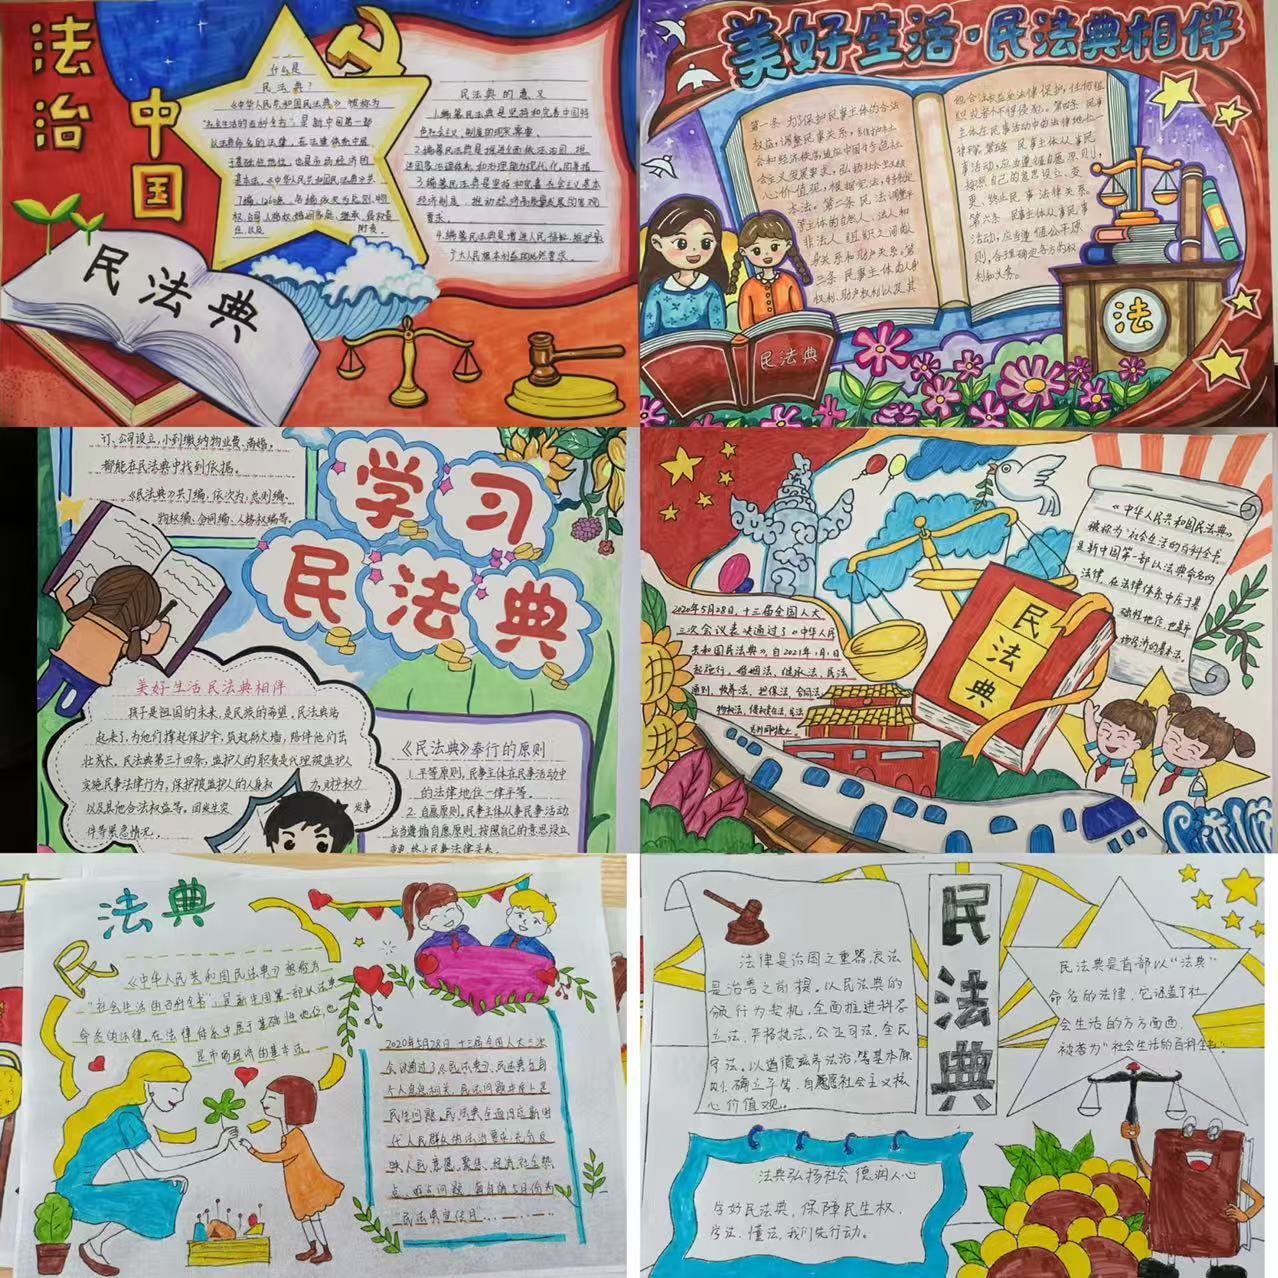 法治
中国
什么是
民法典?
《中华人民共和国民法典》被称为
“社会生活的百科全书”,是新中国第一部
以法典命名的法律,在法律体系中居
于基础性地位,也是市场经济的
基本法。《中华人民共和国民法典》共
民法典的意义
1.编纂民法典是坚持和完善中国特
色社会主义制度的现实需要。
2.编纂民法典是推进全面依法治国、推
进国家治理体系和治理能力现代化的
3.编纂民法典是坚持和完善社会主义基本
经济制度、推动经济高质量发展的客观
要求。
4.编纂民法典是增进人民福祉、维护最
广大人民根本利益的必然要求。
民法典
美好生活·民法典相伴
第一条 为了保护民事主体的合法
权益,调整民事关系,维护社
会和经济秩序,适应中国特色社
会主义发展要求,弘扬社会主义核
心价值观,根据宪法,制定
本法。第二条 民法调整平
等主体的自然人、法人和
非法人组织之间的人
身关系和财产关系。第
三条 民事主体的人身
权利、财产权利以及其
他合法权益受法律保护,任何组
织或者个人不得侵犯。第四条 民事
主体在民事活动中的法律地位一
律平等。第五条 民事主体从事民
事活动,应当遵循自愿原则,
按照自己的意思设立、变
更、终止民事法律关系。
第六条 民事主体从事民事
活动,应当遵循公平原
则,合理确定各方的权
利和义务。
民法典
法
订、公司设立,小到缴纳物业费、离婚,
都能在民法典中找到依据。
《民法典》共7编,依次为:总则编、
物权编、合同编、人格权编等。
学习
民法典
美好生活 民法典相伴
孩子是祖国的未来,是民族的希望。民法典站
起来了,为他们撑起保护伞,筑起防火墙,陪伴他们茁
壮成长。民法典第三十四条,监护人的职责是代理被监护人
实施民事法律行为,保护被监护人的人身权 力、财产权力
以及其他合法权益等。因发生突 发事
件等紧急情况,
《民法典》奉行的原则
1.平等原则,民事主体在民事活动中
的法律地位一律平等。
2.自愿原则,民事主体从事民事活动,
应当遵循自愿原则,按照自己的意思设立、
变更、终止民事法律关系。
《中华人民共和国民法典》
被称为“社会生活的百科全书”,
是新中国第一部以法典命名的
法律,在法律体系中居于基
础性地位,也是市
场经济的基本法。
2020年5月28日,十三届全国人大
三次会议表决通过了《中华人民
共和国民法典》,自2021年1月1日
起施行。婚姻法、继承法、民法
通则、收养法、担保法、合同法、
物权法、侵权责任法、民法
总则同时废止。
民法典
民法典
《中华人民共和国民法典》被称为
“社会生活的百科全书”,是新中国第一部以法典
命名的法律。在法律体系中居于基础性地位,也
是市场经济的基本法。
2020年5月28日,十三届全国人大三次
会议通过了《民法典》,民法典与每
个人息息相关,
代人民群众的法治需求,充分反
民法典
法律是治国之重器,良法
是治善之前提。以民法典的
颁行为契机,全面推进科学
立法、严格执法、公正司法、全民
守法。以道德滋养法治,等基本原
则,确立平等、自愿社会主义核
心价值观。
民法典是首部以“法典”
命名的法律,它涵盖了社
会生活的方方面面,
被誉为“社会生活的百科全书”
法典弘扬社会 德润人心
学好民法典,保障民生权,
学法、懂法,我们先行动。